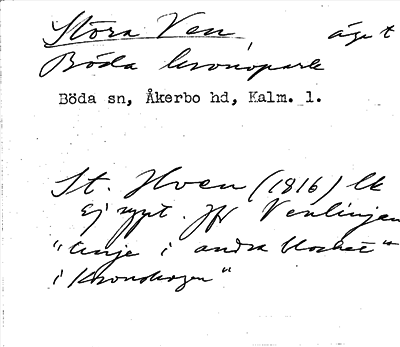 Stora Ven, äget
Böda kronopark
Böda sn, Åkerbo hd, Kalm. l.
St. Hven (1816) lk
Ej uppt. Jfr Venlinjen
"linje i andra blocket"
i Kronoskogen"